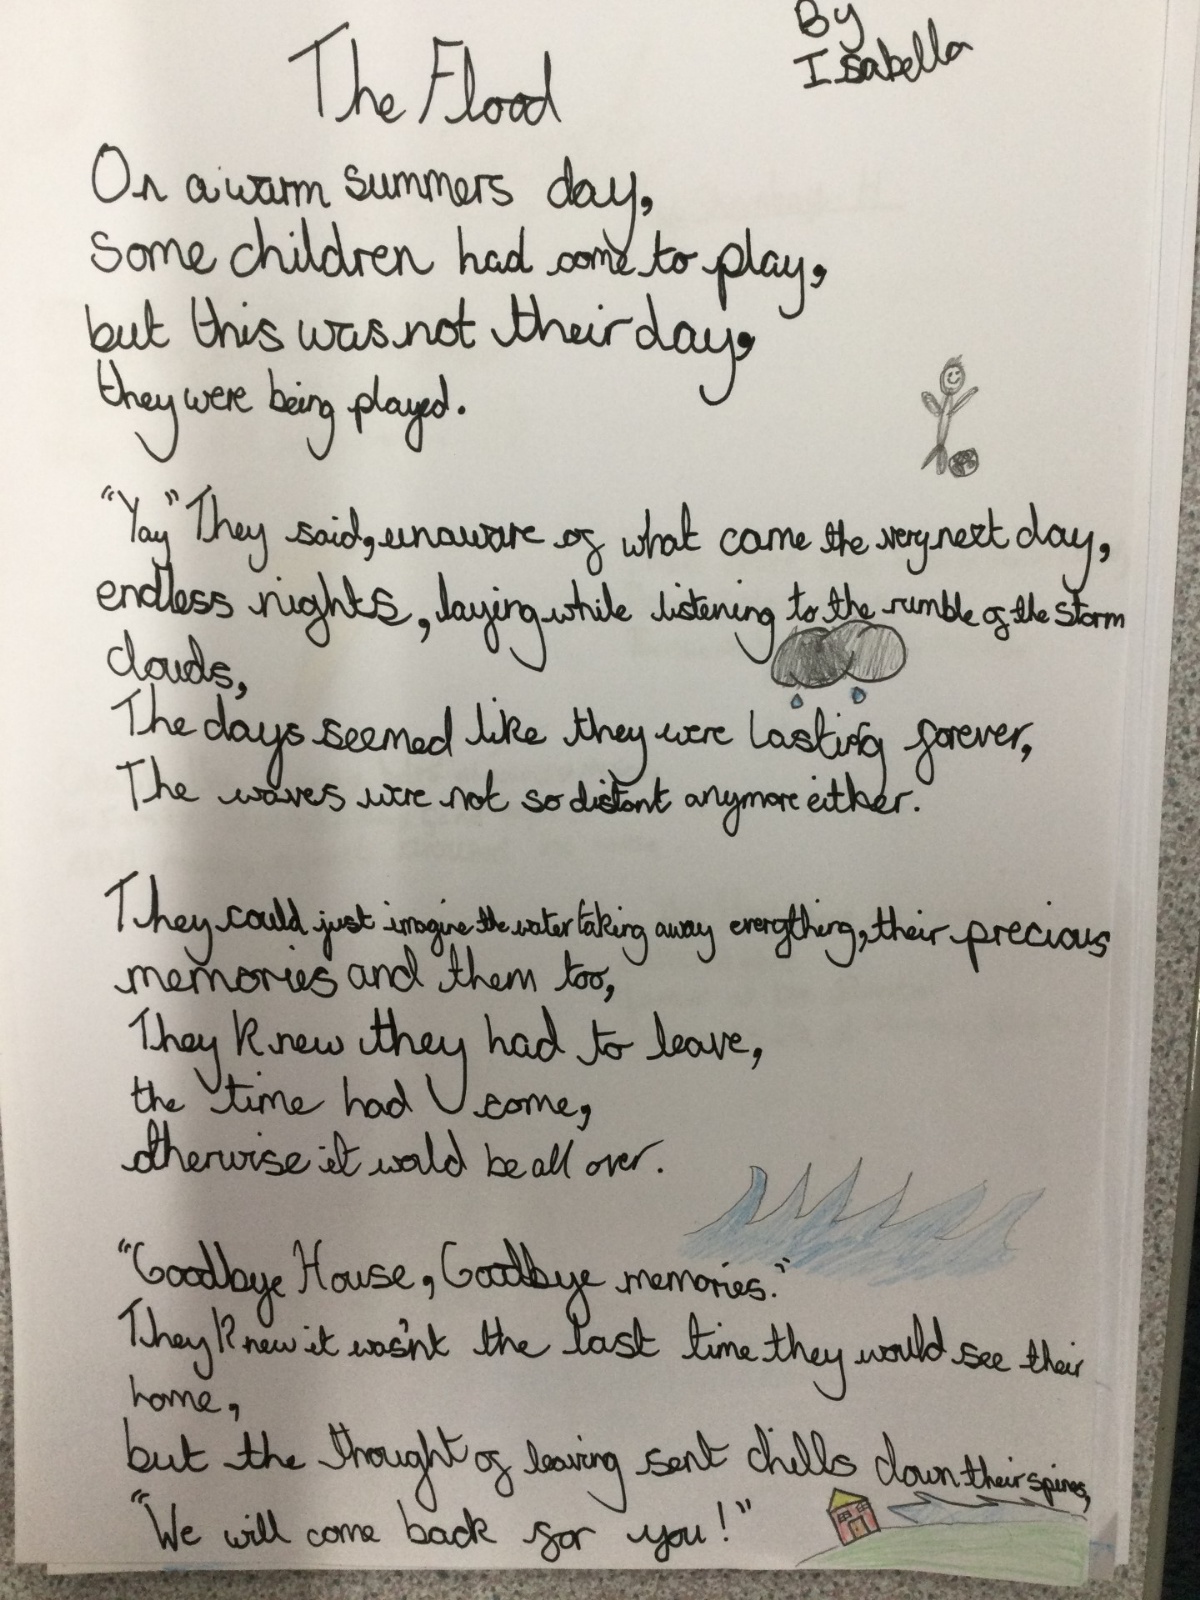 By
Isabella
The Flood
On a warm summers day,
Some children had come to play,
but this was not their day,
they were being played.
"Yay" They said, unaware of what came the very next day,
endless nights, laying while listening to the rumble of the storm
clouds,
The days seemed like they were lasting forever,
The waves were not so distant anymore either.
They could just imagine the water taking away everything, their precious
memories and them too,
They knew they had to leave,
the time had come,
otherwise it would be all over.
"Goodbye House, Goodbye memories."
They knew it wasn't the last time they would see their
home,
but the thought of leaving sent chills down their spines,
"We will come back for you!"